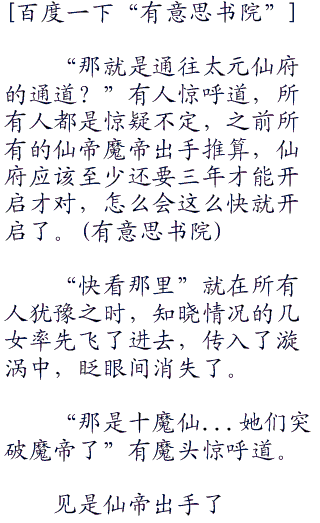 [百度一下“有意思书院”]
“那就是通往太元仙府
的通道？”有人惊呼道，所
有人都是惊疑不定，之前所
有的仙帝魔帝出手推算，仙
府应该至少还要三年才能开
启才对，怎么会这么快就开
启了。(有意思书院)
“快看那里”就在所有
人犹豫之时，知晓情况的几
女率先飞了进去，传入了漩
涡中，眨眼间消失了。
“那是十魔仙...她们突
破魔帝了”有魔头惊呼道。
见是仙帝出手了